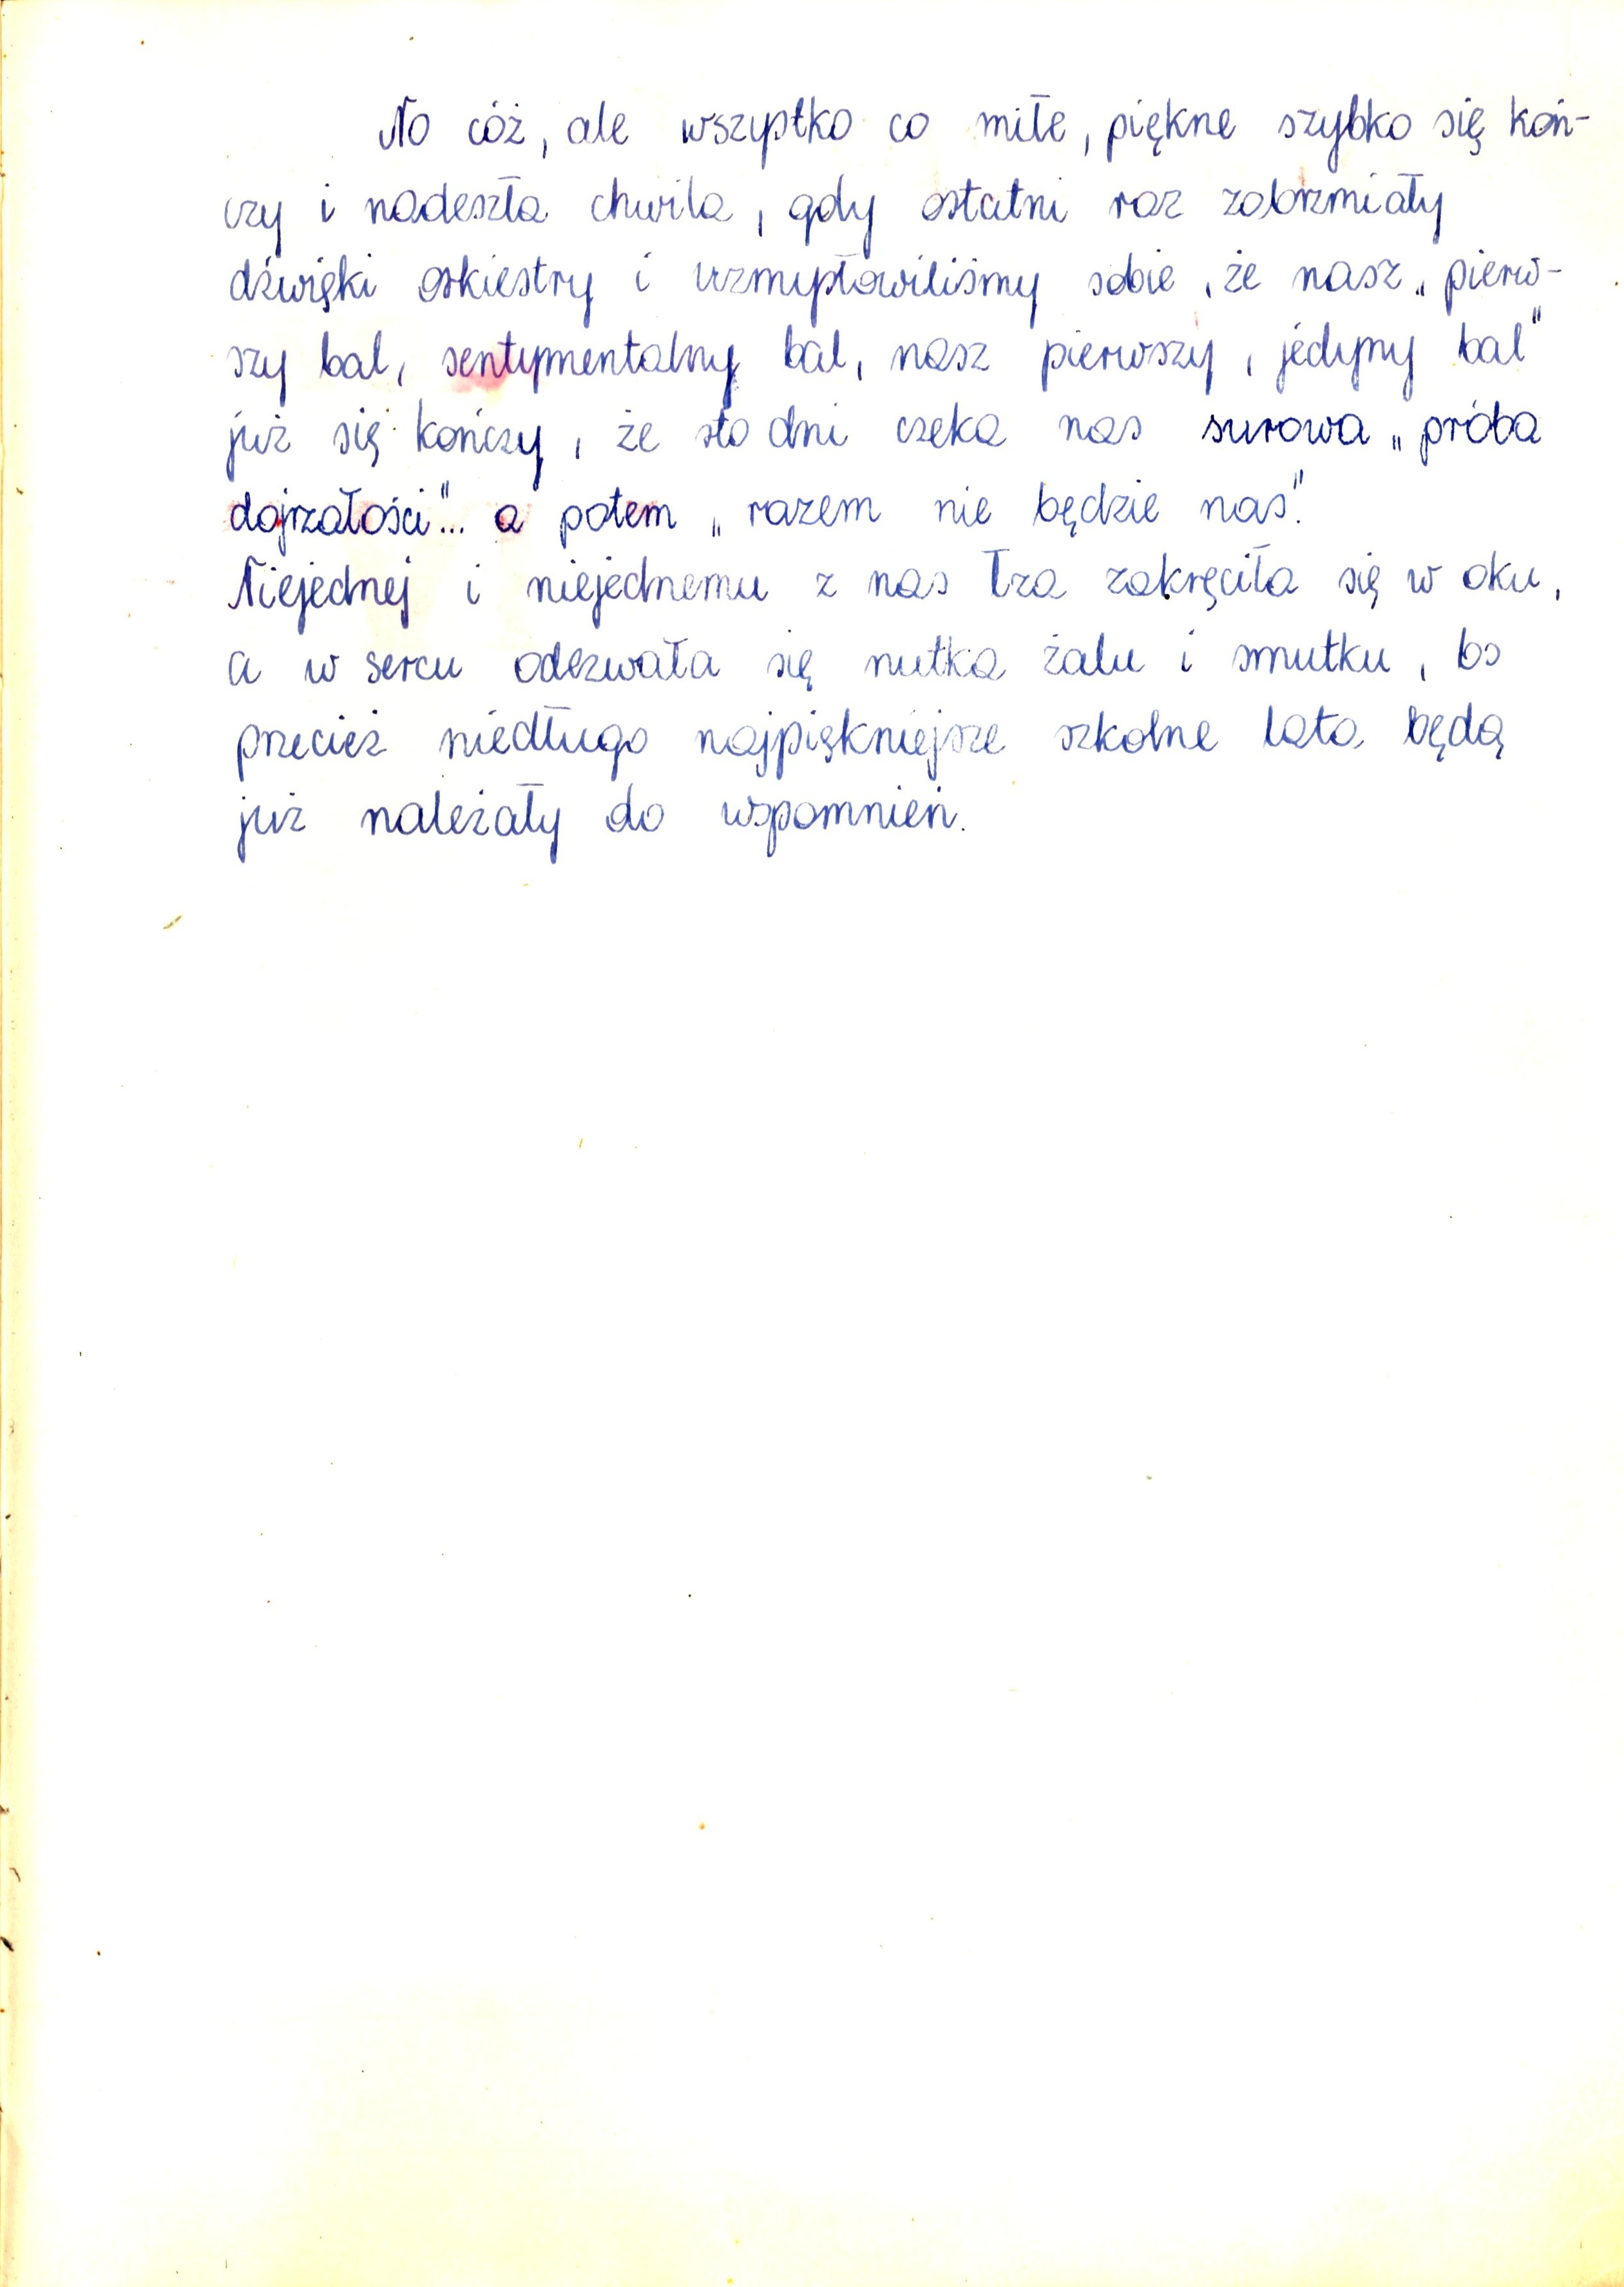 No cóż, ale wszystko co miłe, piękne szybko się koń-
czy i nadeszła chwila, gdy ostatni raz zabrzmiały
dźwięki orkiestry i uzmysłowiliśmy sobie, że nasz „pierw-
szy bal, sentymentalny bal, nasz pierwszy, jedyny bal"
już się kończy, że sto dni czeka nas surowa „próba
dojrzałości"... a potem „razem nie będzie nas".
Niejednej i niejednemu z nas łza zakręciła się w oku,
a w sercu odezwała się nutka żalu i smutku, bo
przecież niedługo najpiękniejsze szkolne lata będą
już należały do wspomnień.